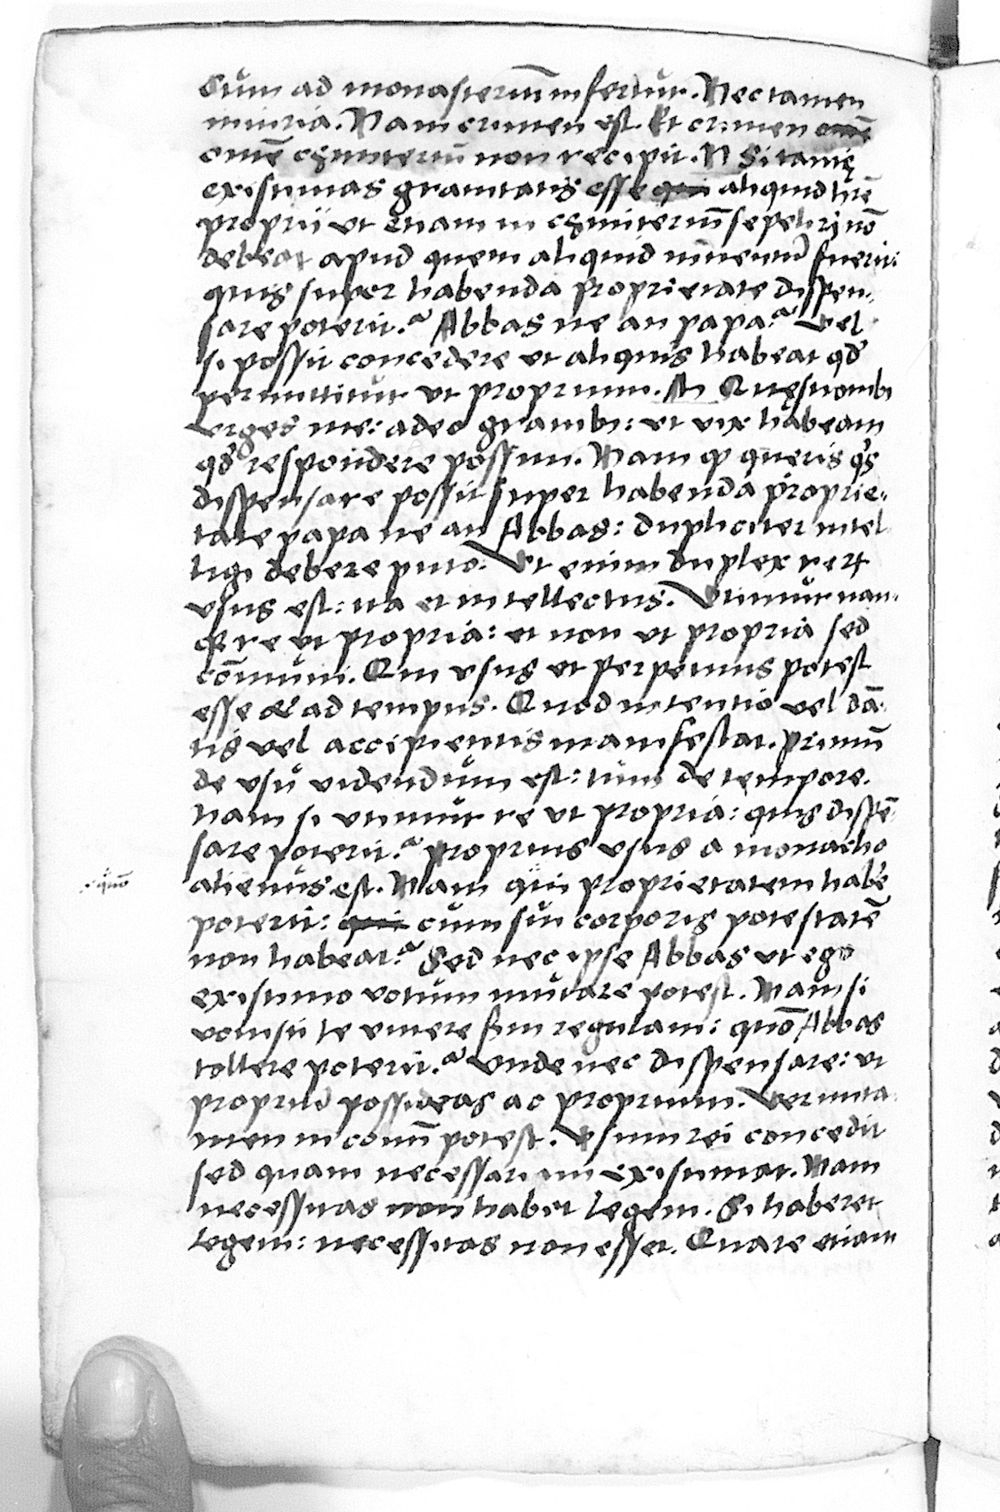 Cum ad monasteriū infertur. Nec tamen
iniuria. Nam crimen est. Et crimen omē
omē cymiteriū non recipit. N Si tantę
existimas grauitatis esse qui aliquid hr̄e
proprii ut etiam in cymiteriū sepeliri nō
debeat apud quem aliquid inuentū fuerit:
quis super habenda proprietate dispen-
sare poterit? Abbas ne an papa? Vel
si possit concedere ut aliquis habeat qd'
permittitur ut proprium. M Quęstionib;
urges me: adeo grauib;: ut uix habeam
qd' respondere possim. Nam q queris qs
dispensare possit super habenda proprie-
tate papa ne an Abbas: dupliciter intel
ligi debere puto. Ut enim duplex rerum
usus est: ita et intellectus. Utimur nan-
q; re ut propria: et non ut propria sed
cōmuni. Qui usus et perpetuus potest
esse & ad tempus. Quod intentio uel dā-
tis uel accipientis manifestat. primū
de usu uidendum est: tum de tempore.
nam si utimur re ut propria: quis dispē
sare poterit? proprius usus a monacho
alienus est. Nam qui proprietatem habē
quō
poterit: qui cum sui corporis potestatē
non habeat? Sed nec ipse Abbas ut ego
existimo uotum mutare potest. Nam si
uouisti te uiuere scdm regulam: quō Abbas
tollere poterit? Unde nec dispensare: ut
propriū possideas ac proprium. Verunta
men in comuī potest. Usum rei concedit
sed quam necessariam existimat. Nam
necessitas non habet legem. Si haberet
legem: necessitas non esset. Quare etiam